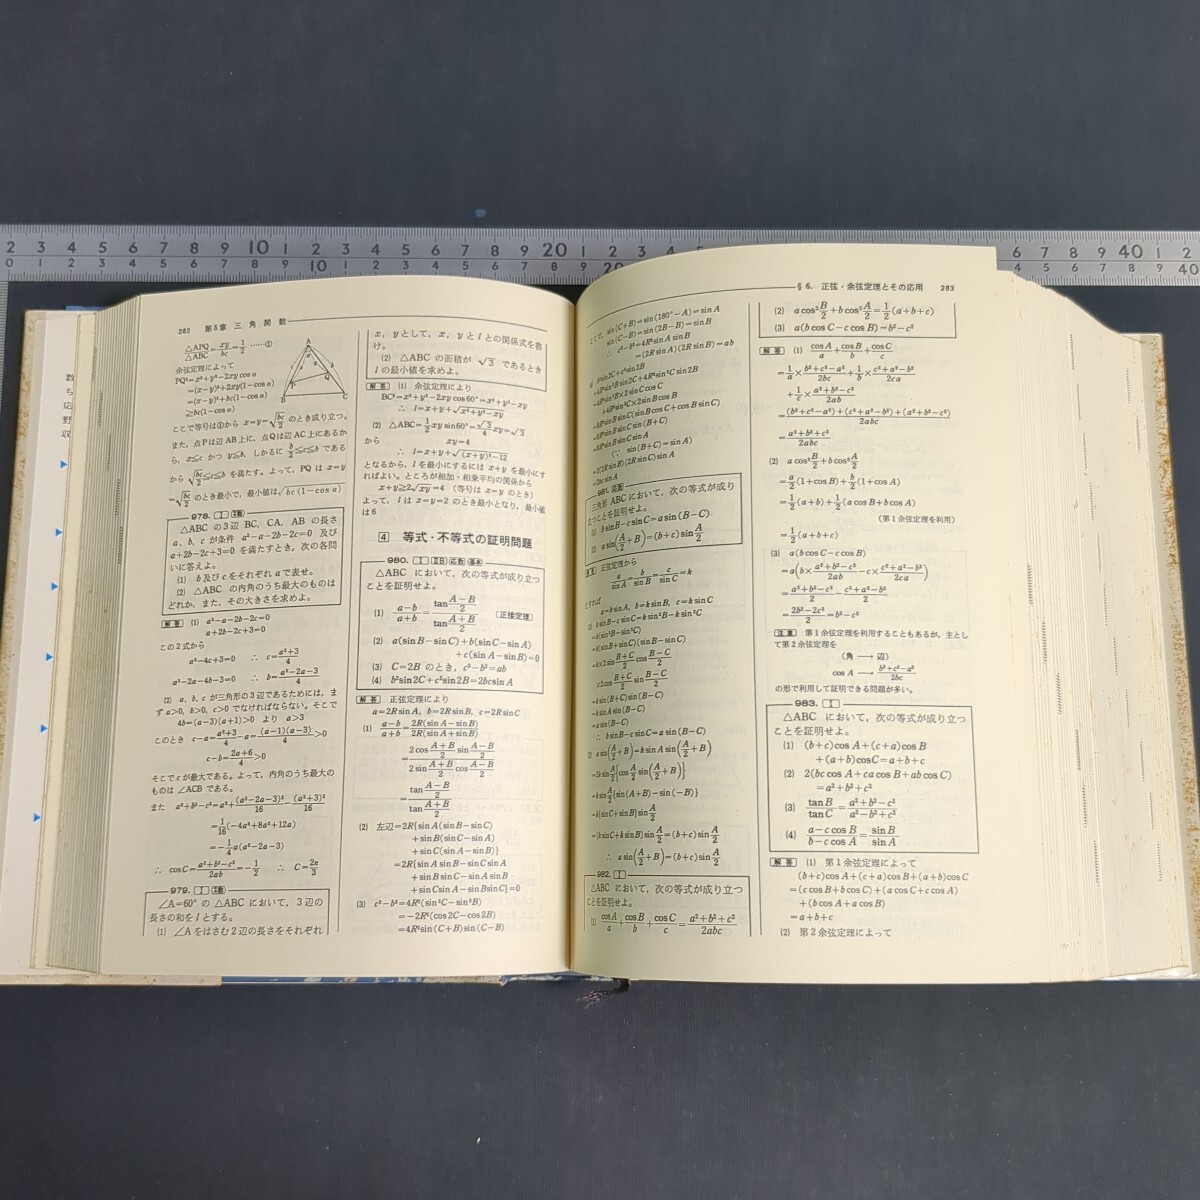 282 第5章 三角関数
△APQ/△ABC=xy/bc=1/2 ……①
余弦定理によって
PQ²=x²+y²-2xy cos α
=(x-y)²+2xy(1-cos α)
=(x-y)²+bc(1-cos α)
≧bc(1-cos α)
ここで等号は①から x=y=√(bc/2) のとき成り立つ。
また，点Pは辺AB上に，点Qは辺AC上にあるか
ら，x≦c かつ y≦b，しかるに b/2≦c≦b である
から √(bc/2)≦c≦b を満たす。よって，PQ は x=y
=√(bc/2) のとき最小で，最小値は √(bc(1-cos α))
978.
△ABC の3辺 BC, CA, AB の長さ
a, b, c が条件 a²-a-2b-2c=0 及び
a+2b-2c+3=0 を満たすとき，次の各問
いに答えよ。
(1) b及びcをそれぞれ a で表せ。
(2) △ABC の内角のうち最大のものは
どれか，また，その大きさを求めよ。
解答 (1) a²-a-2b-2c=0
a+2b-2c+3=0
この2式から
a²-4c+3=0 ∴ c=(a²+3)/4
a²-2a-4b-3=0 ∴ b=(a²-2a-3)/4
(2) a, b, c が三角形の3辺であるためには，ま
ず a>0, b>0, c>0 でなければならない。そこで
4b=(a-3)(a+1)>0 より a>3
このとき c-a=(a²+3)/4-a=(a-1)(a-3)/4>0
c-b=(2a+6)/4>0
そこで c が最大である。よって，内角のうち最大の
ものは ∠ACB である。
また a²+b²-c²=a²+(a²-2a-3)²/16-(a²+3)²/16
=1/16(-4a³+8a²+12a)
=-1/4 a(a²-2a-3)
∴ cosC=(a²+b²-c²)/2ab=-1/2 ∴ C=2π/3
979.
∠A=60° の △ABC において，3辺の
長さの和を l とする。
(1) ∠A をはさむ2辺の長さをそれぞれ
x, y として，x, y と l との関係式を書
け。
(2) △ABC の面積が √3 であるとき
l の最小値を求めよ。
解答 (1) 余弦定理により
BC²=x²+y²-2xy cos60°=x²+y²-xy
∴ l=x+y+√(x²+y²-xy)
(2) △ABC=1/2 xy sin60°=√3/4 xy=√3
から xy=4
∴ l=x+y+√((x+y)²-12)
となるから，l を最小にするには x+y を最小にす
ればよい。ところが相加・相乗平均の関係から
x+y≧2√xy=4 (等号は x=y のとき)
よって，l は x=y=2 のとき最小となり，最小値
は6
4 等式・不等式の証明問題
980. I ⅡB 応数 基本
△ABC において，次の等式が成り立つ
ことを証明せよ。
(1) (a-b)/(a+b)=tan((A-B)/2)/tan((A+B)/2) 〔正接定理〕
(2) a(sinB-sinC)+b(sinC-sinA)
+c(sinA-sinB)=0
(3) C=2B のとき，c²-b²=ab
(4) b²sin2C+c²sin2B=2bcsinA
解答 正弦定理により
a=2RsinA, b=2RsinB, c=2RsinC
(1) (a-b)/(a+b)=2R(sinA-sinB)/2R(sinA+sinB)
=(2cos((A+B)/2)sin((A-B)/2))/(2sin((A+B)/2)cos((A-B)/2))
=tan((A-B)/2)/tan((A+B)/2)
(2) 左辺=2R{sinA(sinB-sinC)
+sinB(sinC-sinA)
+sinC(sinA-sinB)}
=2R{sinAsinB-sinCsinA
+sinBsinC-sinAsinB
+sinCsinA-sinBsinC}=0
(3) c²-b²=4R²(sin²C-sin²B)
=-2R²(cos2C-cos2B)
=4R²sin(C+B)sin(C-B)
§6. 正弦・余弦定理とその応用 283
sin(C+B)=sin(180°-A)=sinA
sin(C-B)=sin(2B-B)=sinB
∴ c²-b²=4R²sinAsinB
=(2RsinA)(2RsinB)=ab
b²sin2C+c²sin2B
=4R²sin²Bsin2C+4R²sin²Csin2B
=4R²sin²B×2sinCcosC
+4R²sin²C×2sinBcosB
=8R²sinBsinC(sinBcosC+cosBsinC)
=8R²sinBsinCsin(B+C)
=8R²sinBsinCsinA
(∵ sin(B+C)=sinA)
=2(2RsinB)(2RsinC)sinA
=2bcsinA
981. 応数
三角形 ABC において，次の等式が成り
立つことを証明せよ。
(1) bsinB-csinC=asin(B-C)
(2) asin(A/2+B)=(b+c)sin(A/2)
解答 正弦定理から
a/sinA=b/sinB=c/sinC=k
とすれば
a=ksinA, b=ksinB, c=ksinC
(1) bsinB-csinC=ksin²B-ksin²C
=k(sin²B-sin²C)
=k(sinB+sinC)(sinB-sinC)
=k×2sin((B+C)/2)cos((B-C)/2)
×2cos((B+C)/2)sin((B-C)/2)
=ksin(B+C)sin(B-C)
=ksinAsin(B-C)
=asin(B-C)
∴ bsinB-csinC=asin(B-C)
(2) asin(A/2+B)=ksinAsin(A/2+B)
=2ksin(A/2){cos(A/2)sin(A/2+B)}
=ksin(A/2){sin(A+B)-sin(-B)}
=k(sinC+sinB)sin(A/2)
=(ksinC+ksinB)sin(A/2)=(b+c)sin(A/2)
∴ asin(A/2+B)=(b+c)sin(A/2)
982. I
△ABC において，次の等式が成り立つ
ことを証明せよ。
(1) cosA/a+cosB/b+cosC/c=(a²+b²+c²)/2abc
(2) acos²(B/2)+bcos²(A/2)=1/2(a+b+c)
(3) a(bcosC-ccosB)=b²-c²
解答 (1) cosA/a+cosB/b+cosC/c
=1/a×(b²+c²-a²)/2bc+1/b×(c²+a²-b²)/2ca
+1/c×(a²+b²-c²)/2ab
=((b²+c²-a²)+(c²+a²-b²)+(a²+b²-c²))/2abc
=(a²+b²+c²)/2abc
(2) acos²(B/2)+bcos²(A/2)
=a/2(1+cosB)+b/2(1+cosA)
=1/2(a+b)+1/2(acosB+bcosA)
(第1余弦定理を利用)
=1/2(a+b+c)
(3) a(bcosC-ccosB)
=a(b×(a²+b²-c²)/2ab-c×(c²+a²-b²)/2ca)
=(a²+b²-c²)/2-(c²+a²-b²)/2
=(2b²-2c²)/2=b²-c²
注意 第1余弦定理を利用することもあるが，主とし
て第2余弦定理を
(角 → 辺)
cosA → (b²+c²-a²)/2bc
の形で利用して証明できる問題が多い。
983. I
△ABC において，次の等式が成り立つ
ことを証明せよ。
(1) (b+c)cosA+(c+a)cosB
+(a+b)cosC=a+b+c
(2) 2(bccosA+cacosB+abcosC)
=a²+b²+c²
(3) tanB/tanC=(a²+b²-c²)/(a²-b²+c²)
(4) (a-ccosB)/(b-ccosA)=sinB/sinA
解答 (1) 第1余弦定理によって
(b+c)cosA+(c+a)cosB+(a+b)cosC
=(ccosB+bcosC)+(acosC+ccosA)
+(bcosA+acosB)
=a+b+c
(2) 第2余弦定理によって